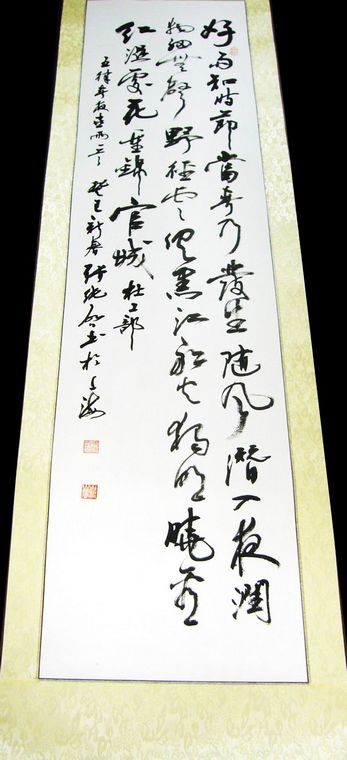 好雨知时節當春乃發生随風潛入夜潤
物細無聲野徑雲俱黑江船火獨明曉看
紅溼處花重錦官城 杜工部
五律春夜喜雨 新春 書於上海